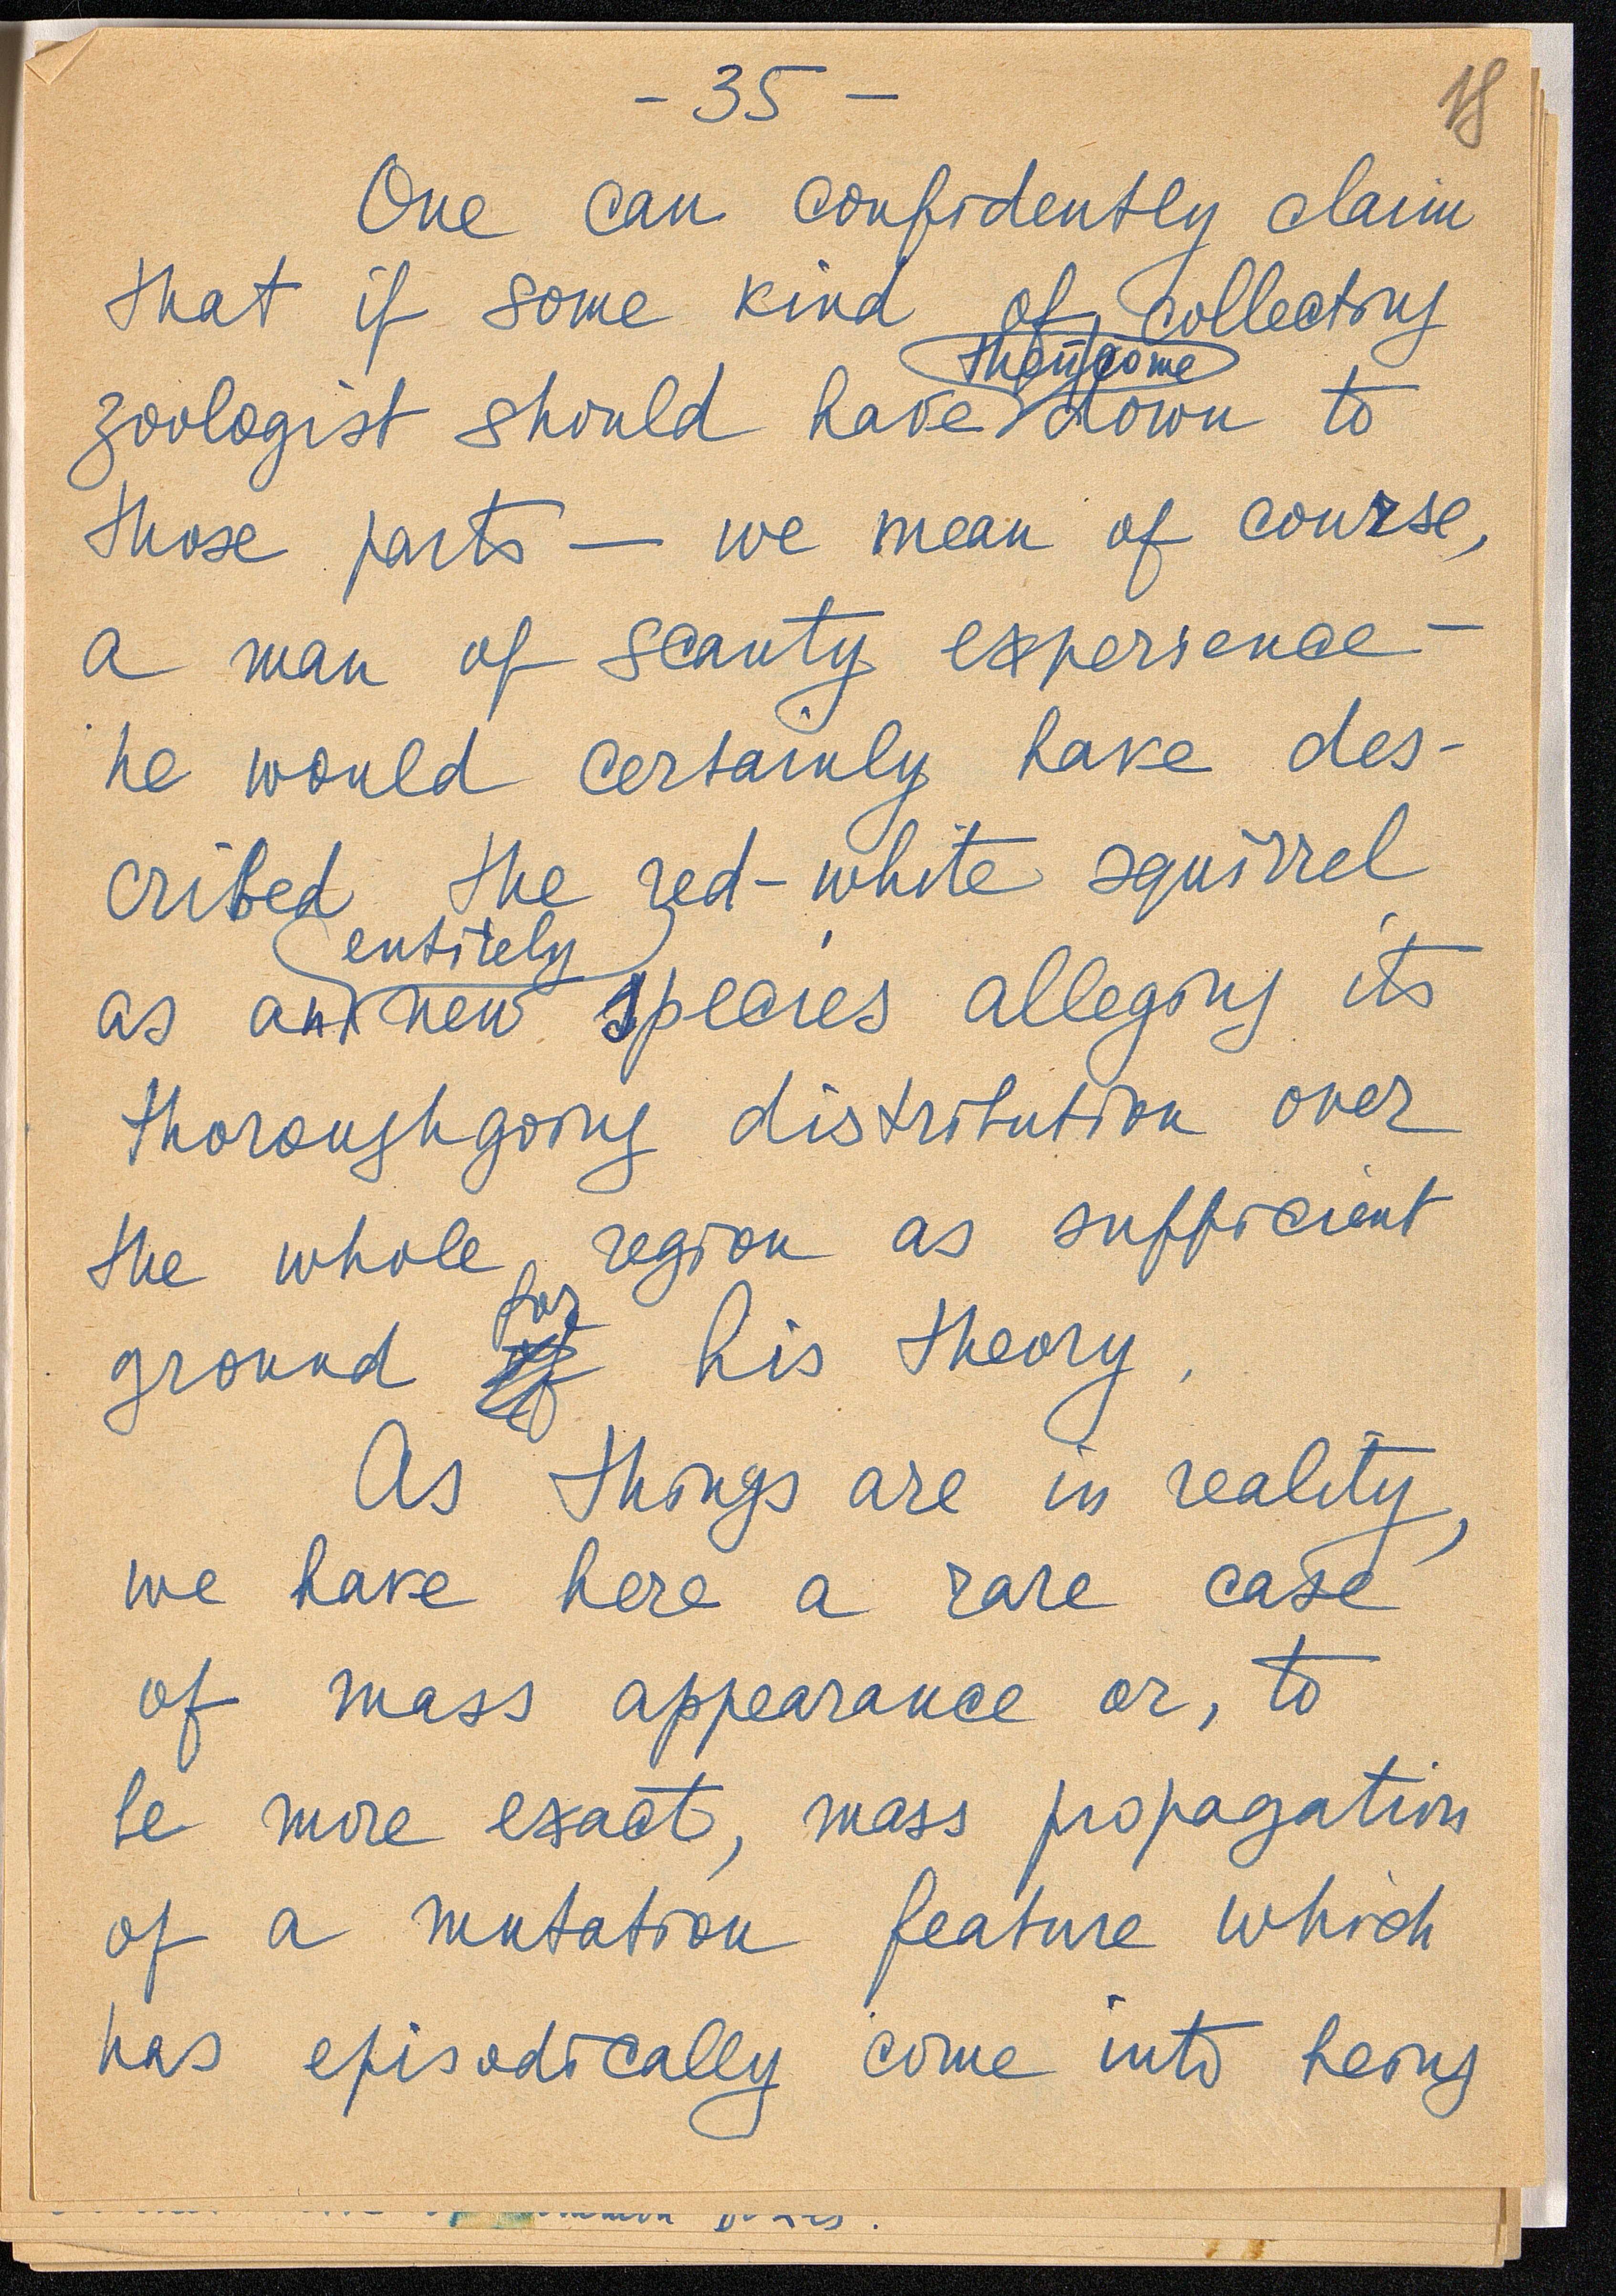 - 35 -
18
One can confidently claim
that if some kind of collecting
then come
zoologist should have down to
those parts — we mean of course,
a man of scanty experience —
he would certainly have des-
cribed the red-white squirrel
entirely
as an new species alleging its
thoroughgoing distribution over
the whole region as sufficient
for
ground his theory.
As things are in reality,
we have here a rare case
of mass appearance or, to
be more exact, mass propagation
of a mutation feature which
has episodically come into being